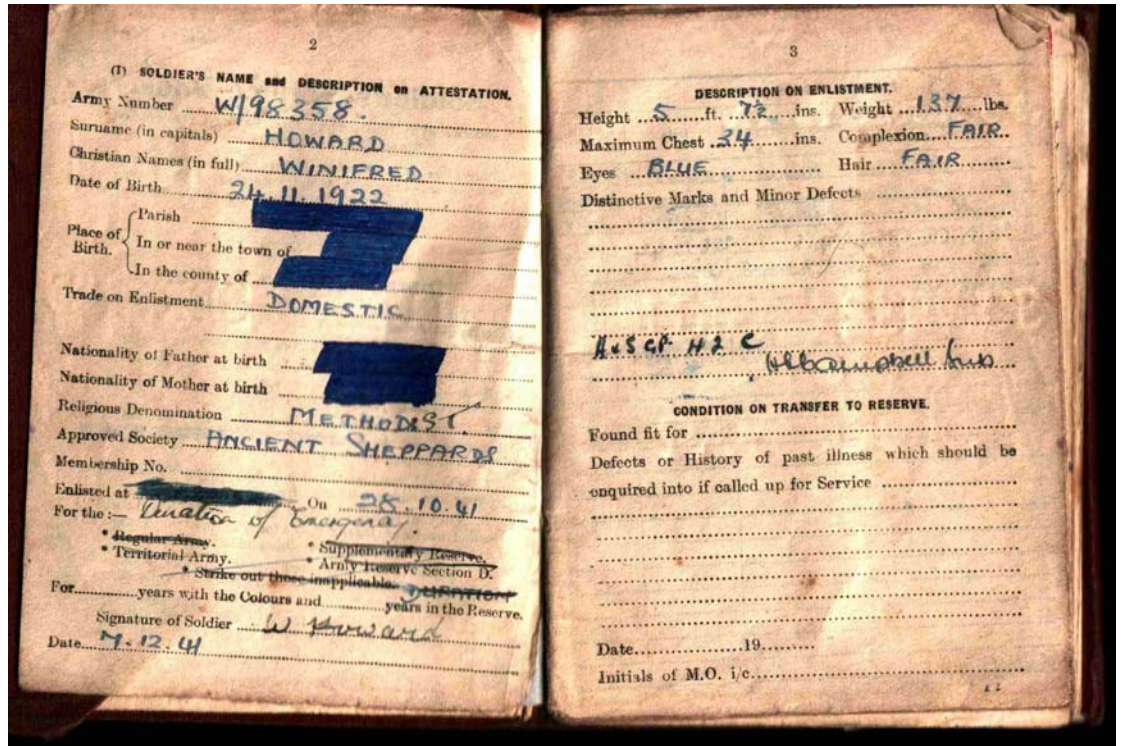 2
(I) SOLDIER'S NAME and DESCRIPTION on ATTESTATION.
Army Number W/98358.
Surname (in capitals) HOWARD
Christian Names (in full) WINIFRED
Date of Birth 24.11.1922
Place of Birth.
Parish
In or near the town of
In the county of
Trade on Enlistment DOMESTIC
Nationality of Father at birth
Nationality of Mother at birth
Religious Denomination METHODIST.
Approved Society ANCIENT SHEPPARDS
Membership No.
Enlisted at On 28.10.41
For the :— Duration of Emergency.
* Regular Army. * Supplementary Reserve.
* Territorial Army. * Army Reserve Section D.
* Strike out those inapplicable. DURATION
For............years with the Colours and............years in the Reserve.
Signature of Soldier W Howard
Date 7.12.41
3
DESCRIPTION ON ENLISTMENT.
Height 5 ft. 7½ ins. Weight 137 lbs.
Maximum Chest 34 ins. Complexion FAIR
Eyes BLUE Hair FAIR
Distinctive Marks and Minor Defects
H 2 C
CONDITION ON TRANSFER TO RESERVE.
Found fit for
Defects or History of past illness which should be
enquired into if called up for Service
Date 19
Initials of M.O. i/c